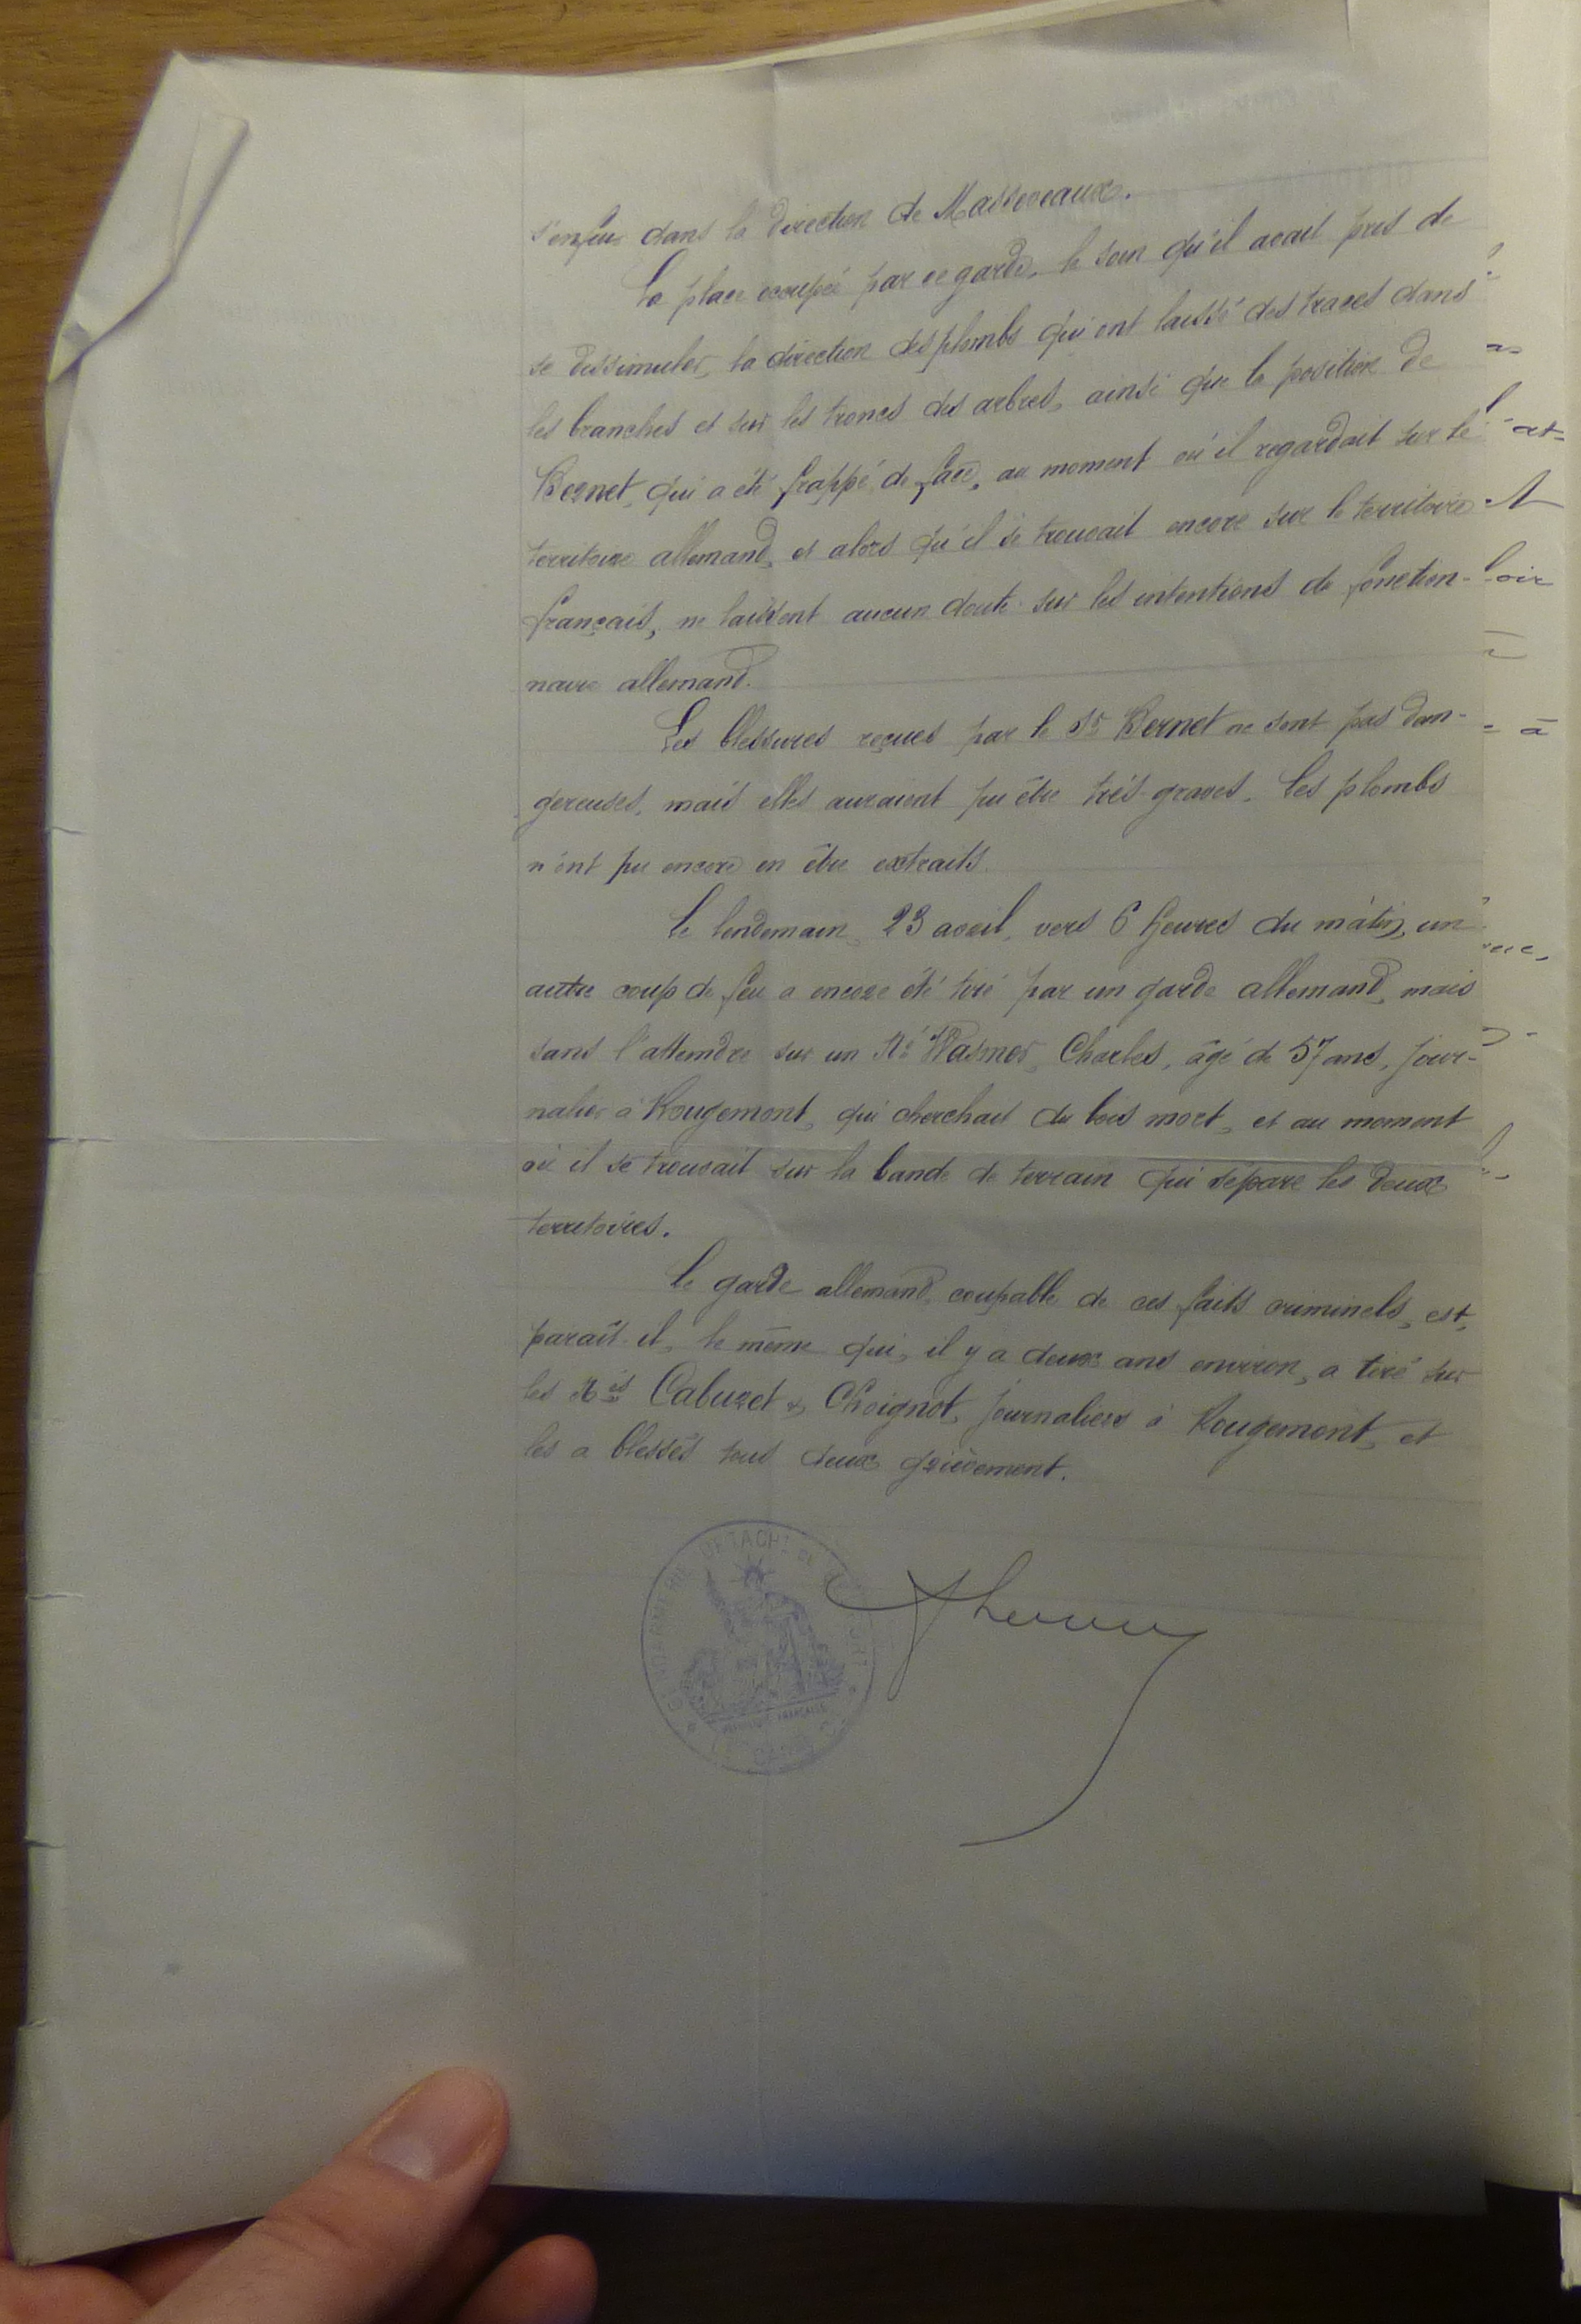 s'enfuir dans la direction de Massevaux.
La place occupée par ce garde, le soin qu'il avait pris de
se dissimuler, la direction des plombs qui ont laissé des traces dans
les branches et sur les troncs des arbres, ainsi que la position de
Bernet, qui a été frappé de face, au moment où il regardait sur le
territoire allemand, et alors qu'il se trouvait encore sur le territoire
français, ne laissent aucun doute sur les intentions de fonction-
naire allemand.
Les blessures reçues par le Sr Bernet ne sont pas dan-
gereuses, mais elles auraient pu être très-graves. Les plombs
n'ont pu encore en être extraits.
Le lendemain, 23 avril, vers 6 heures du matin, un
autre coup de feu a encore été tiré par un garde allemand, mais
sans l'atteindre sur un Né Wasmer, Charles, âgé de 57 ans, jour-
nalier à Rougemont, qui cherchait du bois mort, et au moment
où il se trouvait sur la bande de terrain qui sépare les deux
territoires.
Le garde allemand, coupable de ces faits criminels, est,
paraît-il, le même qui, il y a deux ans environ, a tiré sur
les Nés Cabuzet & Choignot, journaliers à Rougemont, et
les a blessés tous deux grièvement.
GENDARMERIE DÉTACHT
RÉPUBLIQUE FRANÇAISE